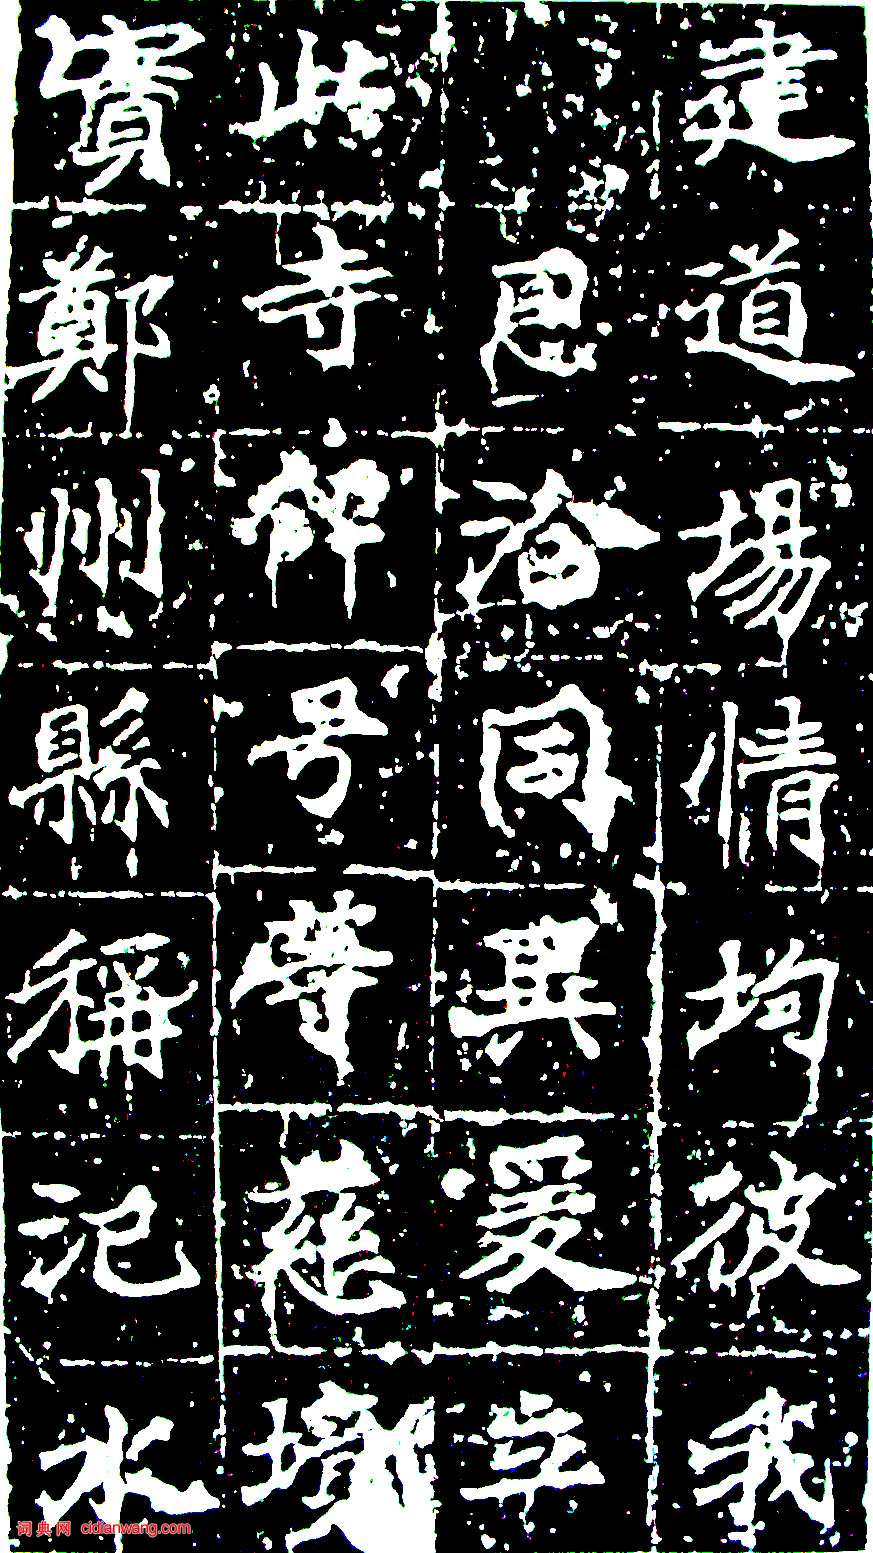 建道場情均彼我
恩洽同異爰立
此寺号等慈境
實鄭州縣稱汜水
词典网 cidianwang.com